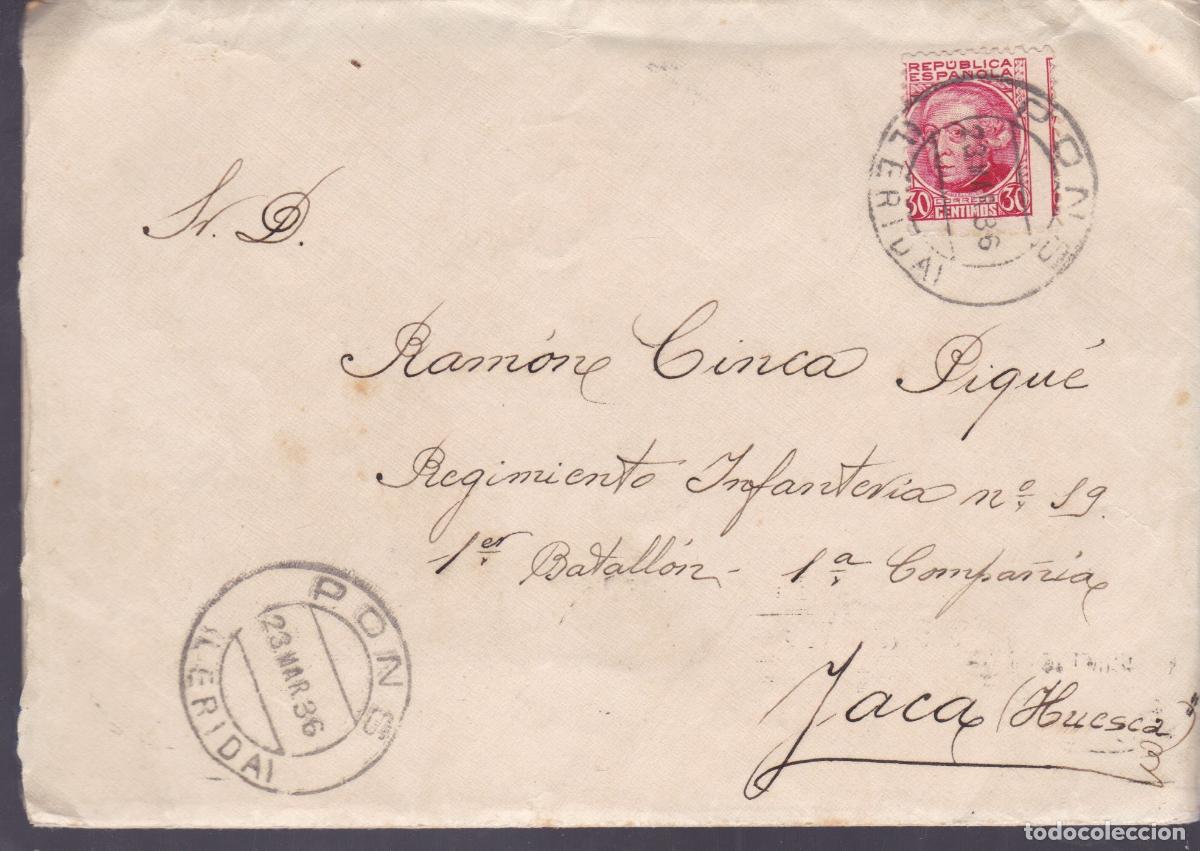 REPÚBLICA
ESPAÑOLA
30 CORREOS 30
CENTIMOS
PONS
23 MAR 36
(LERIDA)
Sr. D.
Ramón Cinca Piqué
Regimiento Infantería nº 19.
1er Batallón - 1ª Compañía
Jaca (Huesca)
PONS
23.MAR.36
(LERIDA)
todocoleccion